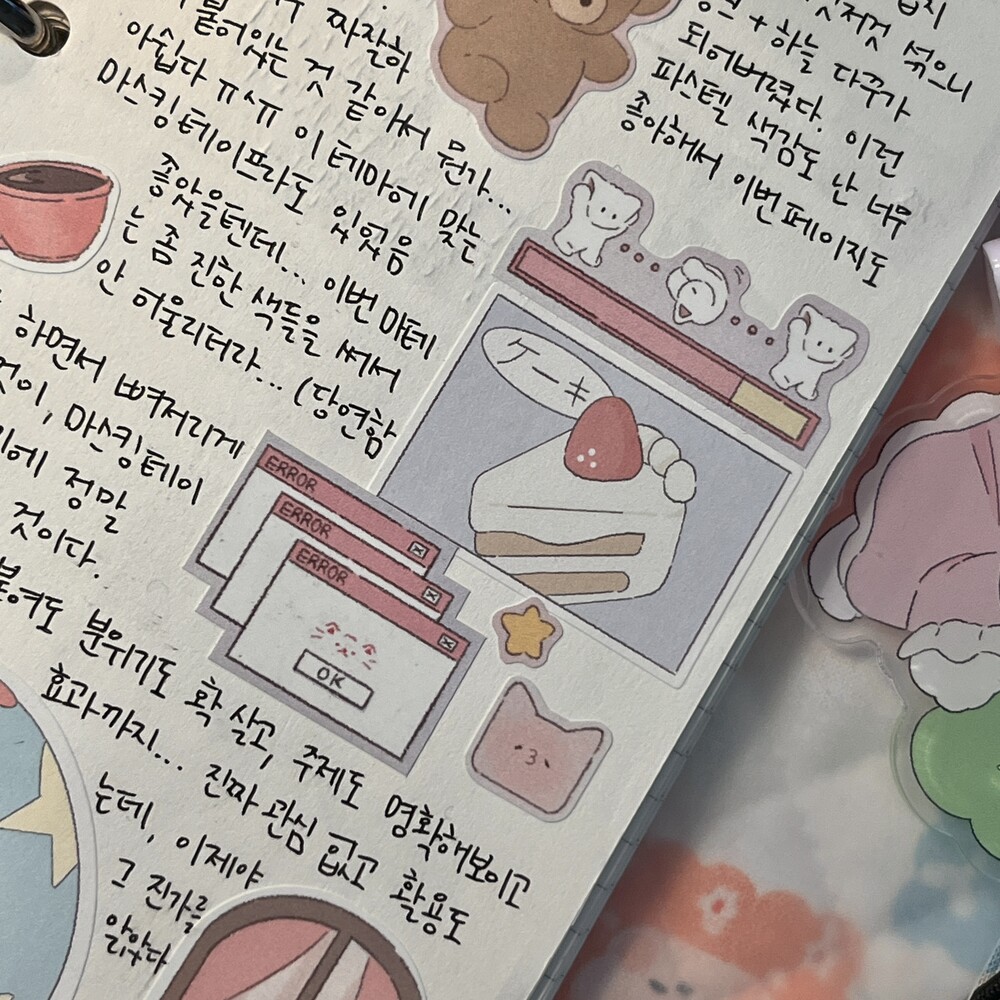 짜잔하
붙어있는 것 같아서 뭔가...
아쉽다 ㅠㅅㅠ 이 테마에 맞는
마스킹테이프라도 있었음
좋았을텐데... 이번 마테
는 좀 진한 색들을 써서
안 어울리더라... (당연함
하면서 뼈저리게
것이, 마스킹테이
정말
것이다.
붙여도 분위기도 확 살고, 주제도 명확해보이고
효과까지... 진짜 관심 없고 활용도
는데, 이제야
그 진가를
알았다
섞으니
+ 하늘 다꾸가
되어버렸다. 이런
파스텔 색감도 난 너무
좋아해서 이번페이지도
ケーキ
ERROR
ERROR
ERROR
OK